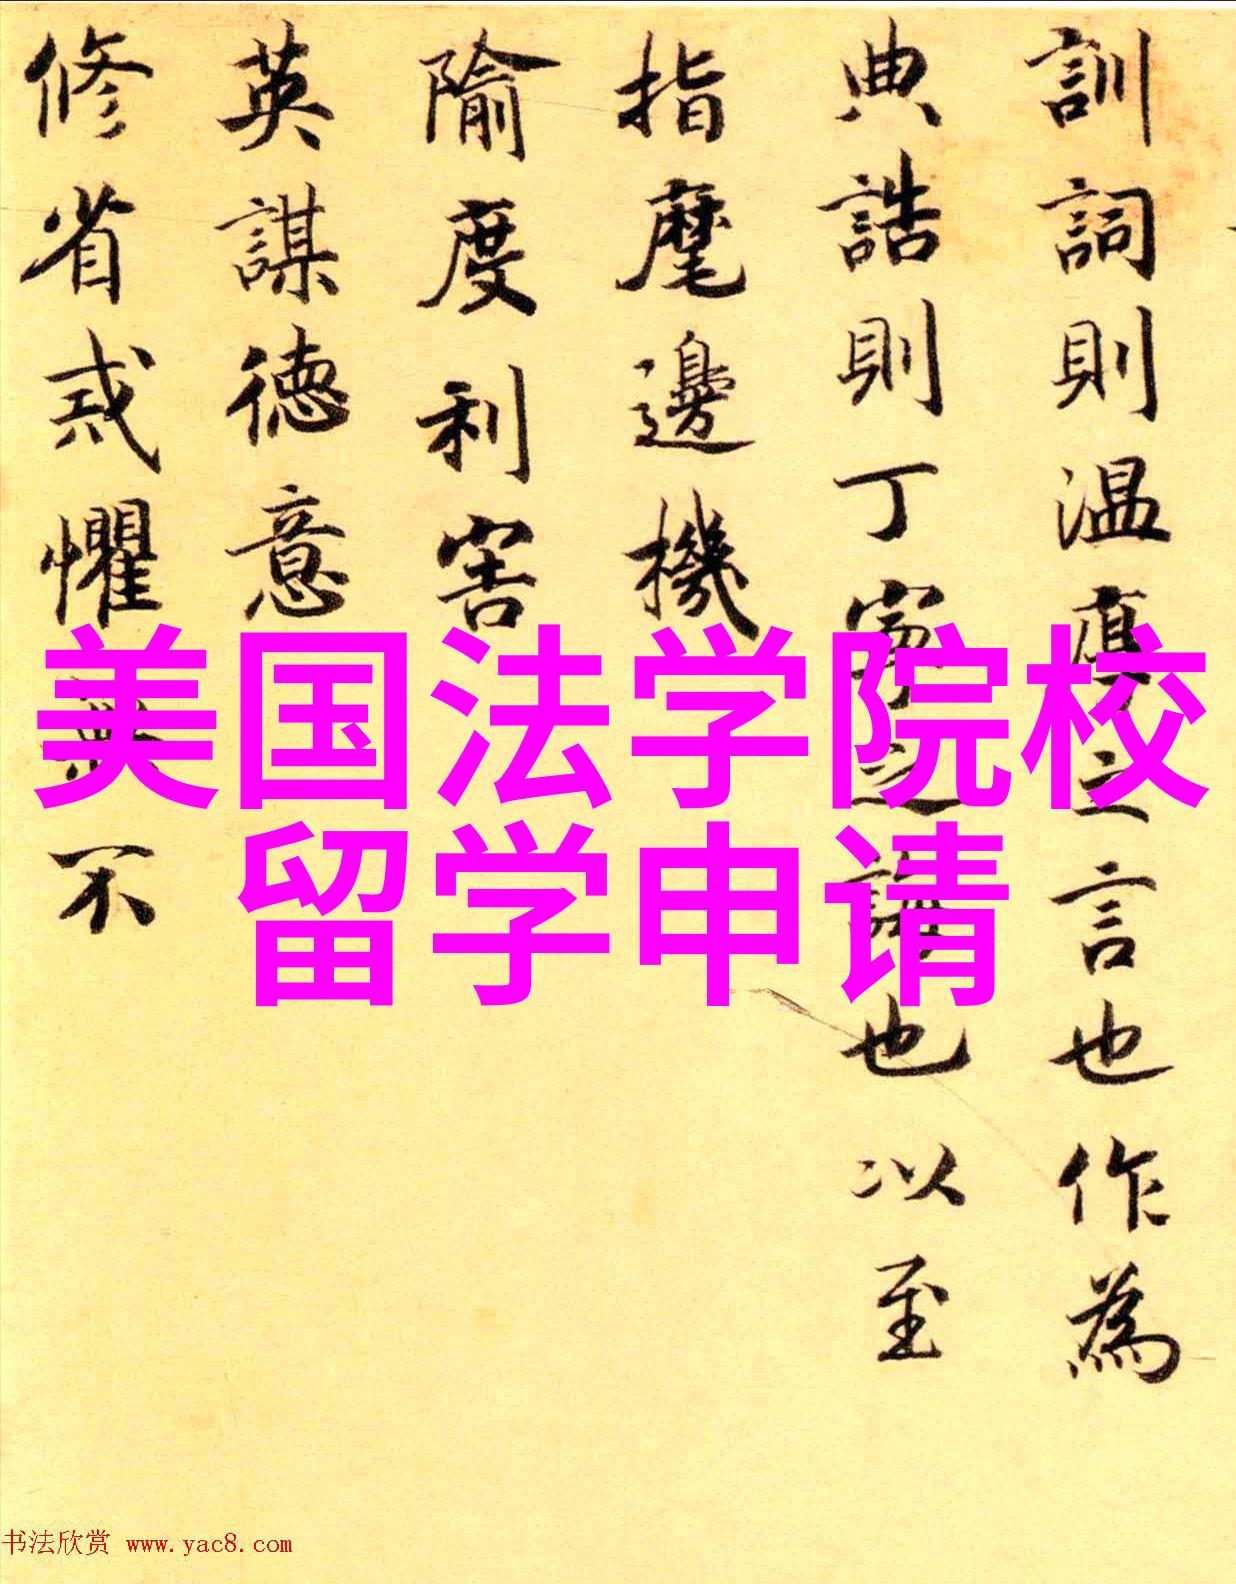 訓詞則温厚之言也作為
典誥則丁寧之誨也以至
指麾邊機
隃度利害
英謀徳意
修省戒懼無不
美国法学院校
留学申请
书法欣赏 www.yac8.com